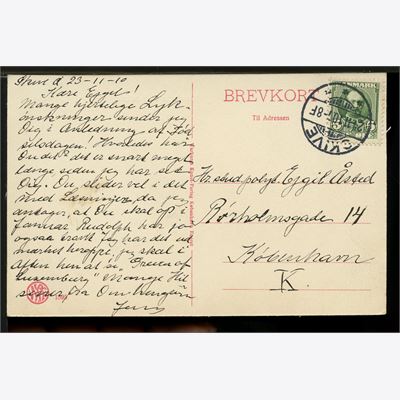 Skive d 23-11-10
Kære Ejgil!
Mange hjertelige Lyk-
ønskninger sender jeg
Dig i Anledning af Fød-
selsdagen. Hvorledes har
Du det? det er snart meget
længe siden jeg har set
Dig. Du slider vel i det
med Læsning, da jeg
antager, at Du skal op i
Januar. Rudolph har jo
ogsaa travlt, jeg har det
jeg skal i
Aften hen at se "Greven af
Luxemburg" Mange Hil-
sener fra
Jenny
BREVKORT
Til Adressen
Hr. stud. polyt. Ejgil Åsted
Rörholmsgade 14
København
K.
DANMARK
SKIVE